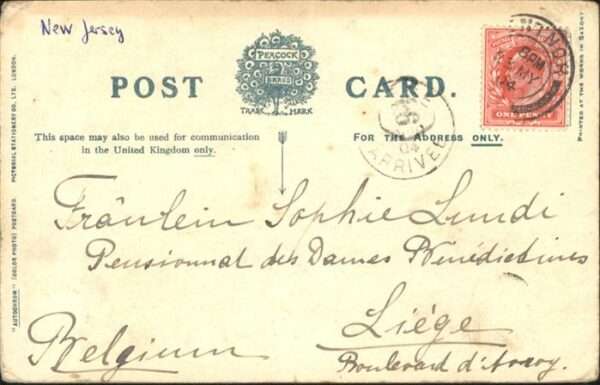 New Jersey
POST CARD.
PEACOCK
BRAND
TRADE MARK
This space may also be used for communication
in the United Kingdom only.
FOR THE ADDRESS ONLY.
ONE PENNY
MY
04
ARRIVEE
04
Fräulein Sophie Lundi
Pensionnat des Dames Bénédictines
Liége
Boulevard d'Avroy.
Belgium
"AUTOCHROM" (COLOR PHOTO) POSTCARD. PICTORIAL STATIONERY CO. LTD., LONDON.
PRINTED AT THE WORKS IN SAXONY